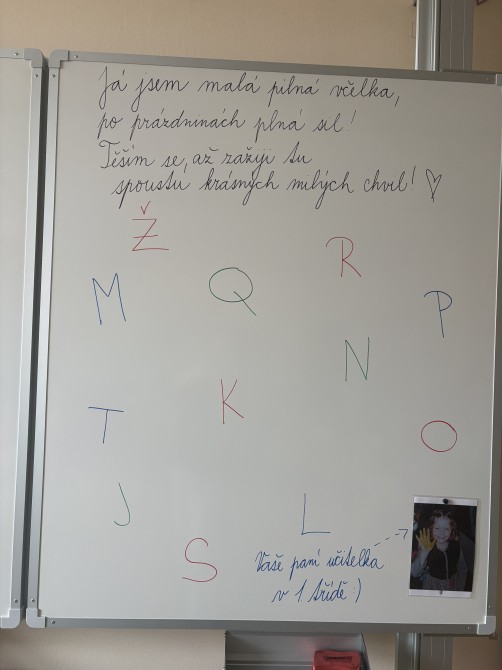 Já jsem malá pilná včelka,
po prázdninách plná sil!
Těším se, až zažiji tu
spoustu krásných milých chvil! ♡
Ž
R
M
Q
P
N
K
T
O
J
L
S
Vaše paní učitelka
v 1. třídě :)